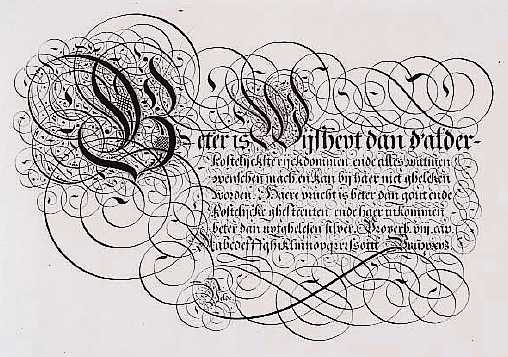 Beter is Wijsheyt dan d'alder-
kostelijckste rijckdommen: ende alles watmen
wenschen mach en kan bij haer niet gheleken
worden. Haere vrucht is beter dan gout ende
kostelijcke ghesteenten: ende haer inkommen
beter dan uytghelesen silver. Proverb. viij. cap.